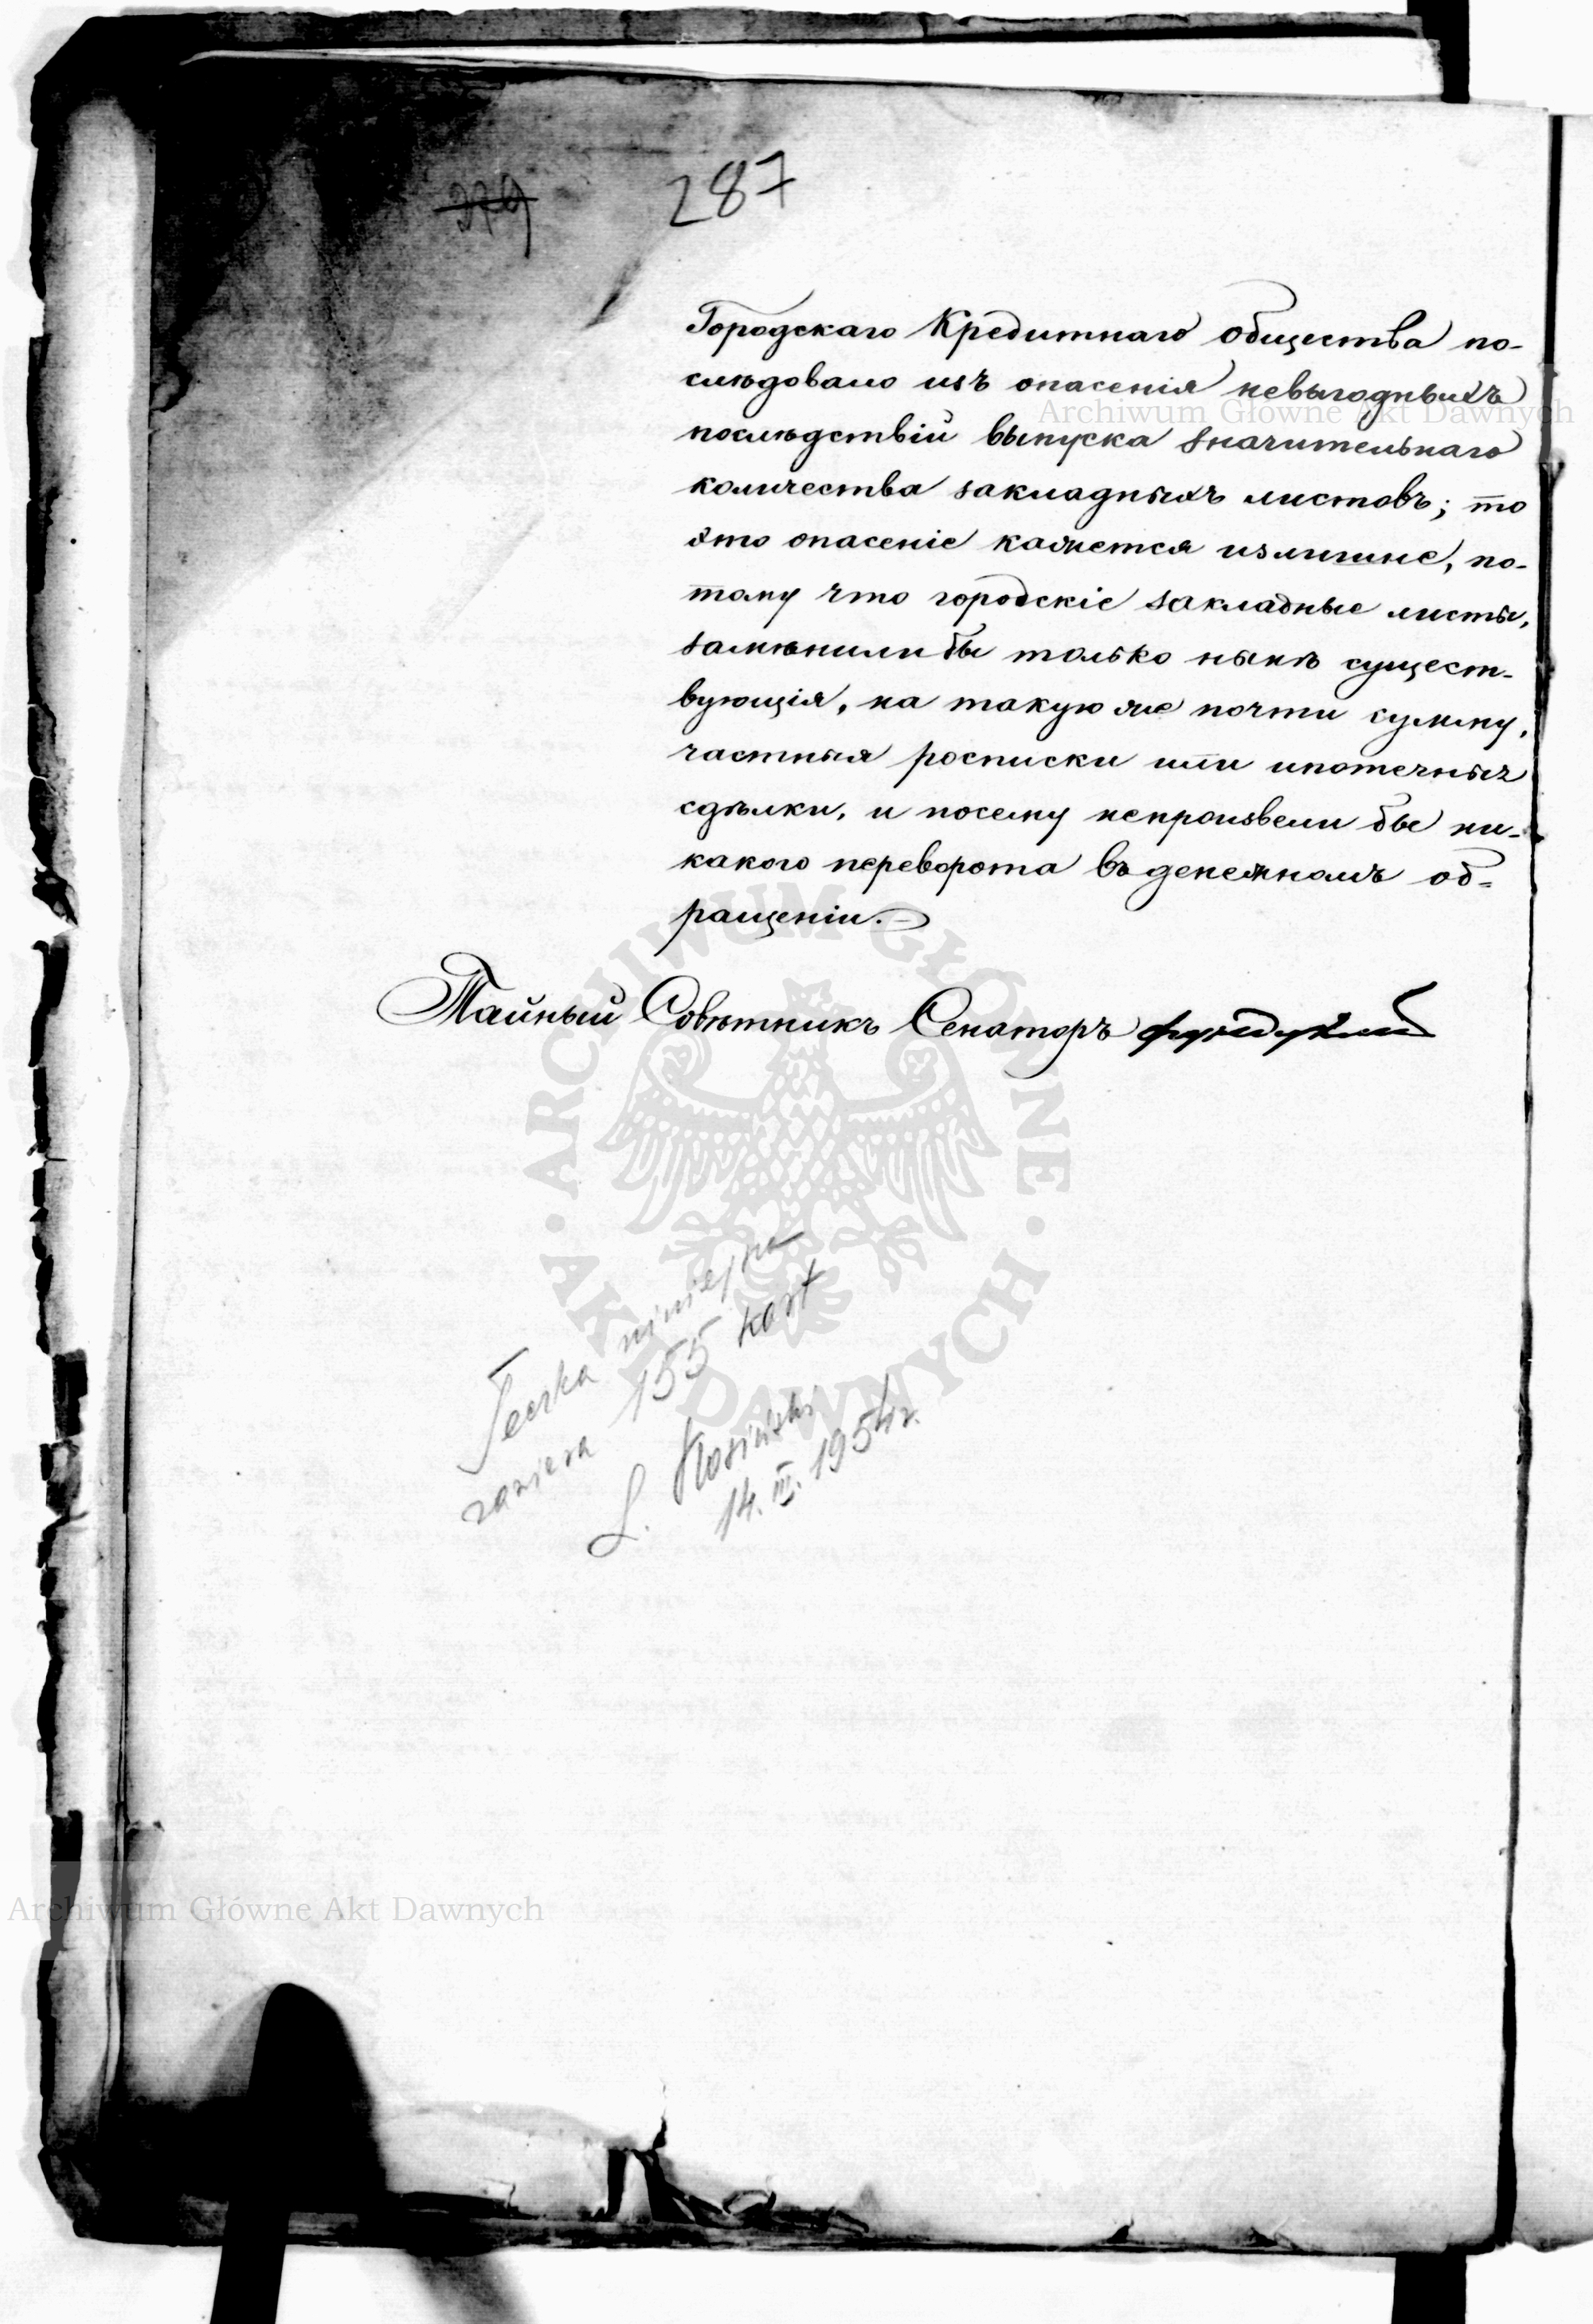 279
287
Городскаго Кредитнаго общества по-
слѣдовало изъ опасенія невыгодныхъ
послѣдствій выпуска значительнаго
количества закладныхъ листовъ; то
это опасеніе кажется излишне, по-
тому что городскіе закладные листы,
замѣнили бы только нынѣ сущест-
вующія, на такую же почти сумму,
частныя росписки или ипотечныя
сдѣлки, и посему непроизвели бы ни-
какого переворота въ денежномъ об-
ращеніи.
Тайный Совѣтникъ Сенаторъ Фундуклей
Teczka niniejsza
zawiera 155 kart
L. Kłosiński
14. III. 1954 r.
Archiwum Główne Akt Dawnych
ARCHIWUM GŁÓWNE · AKT DAWNYCH ·
Archiwum Główne Akt Dawnych